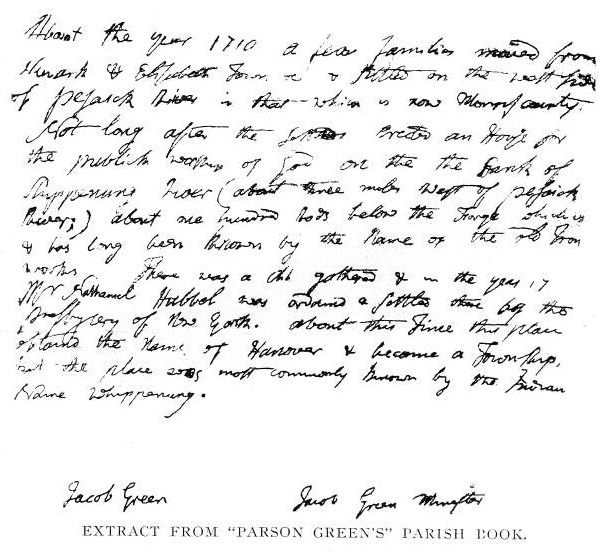 About the year 1710 a few families moved from
Newark & Elizabeth Town & settled on the west side
of pesaick River in that which is now Morris county.
Not long after the settlers Erected an House for
the publick worship of God on the the Bank of
Whippenung River (about three miles west of pesaick
River,) about one hundred Rods below the Forge which is
& has long been known by the Name of the old Iron
works. There was a chh gathered & in the year 17
Mr Nathaniel Hubbel was ordained & settled there by the
presbytery of New York. about this Time this place
obtaind the Name of Hanover & became a Township,
but the place was most commonly known by the Indian
Name Whippenung.
Jacob Green
Jacob Green Minister
EXTRACT FROM "PARSON GREEN'S" PARISH BOOK.